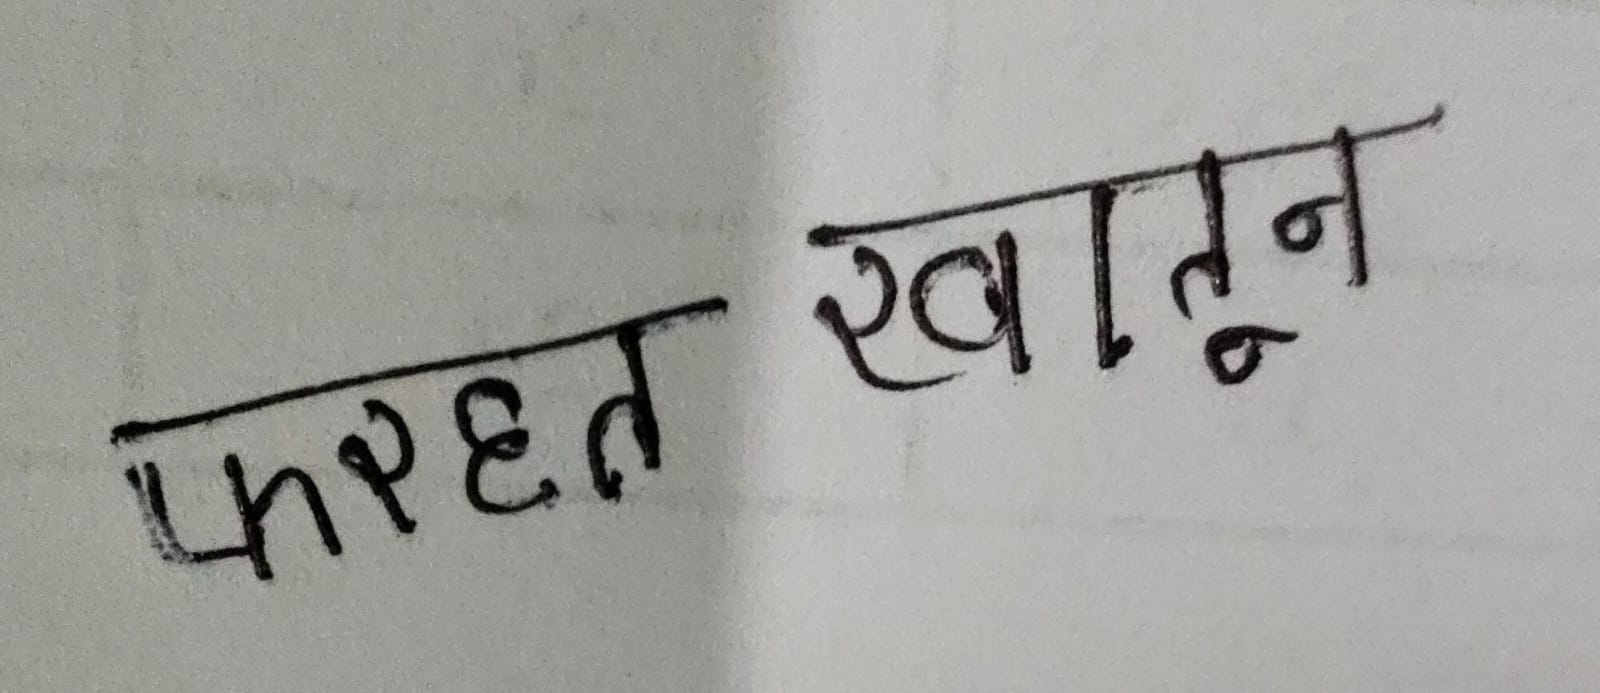 फरहत खातून